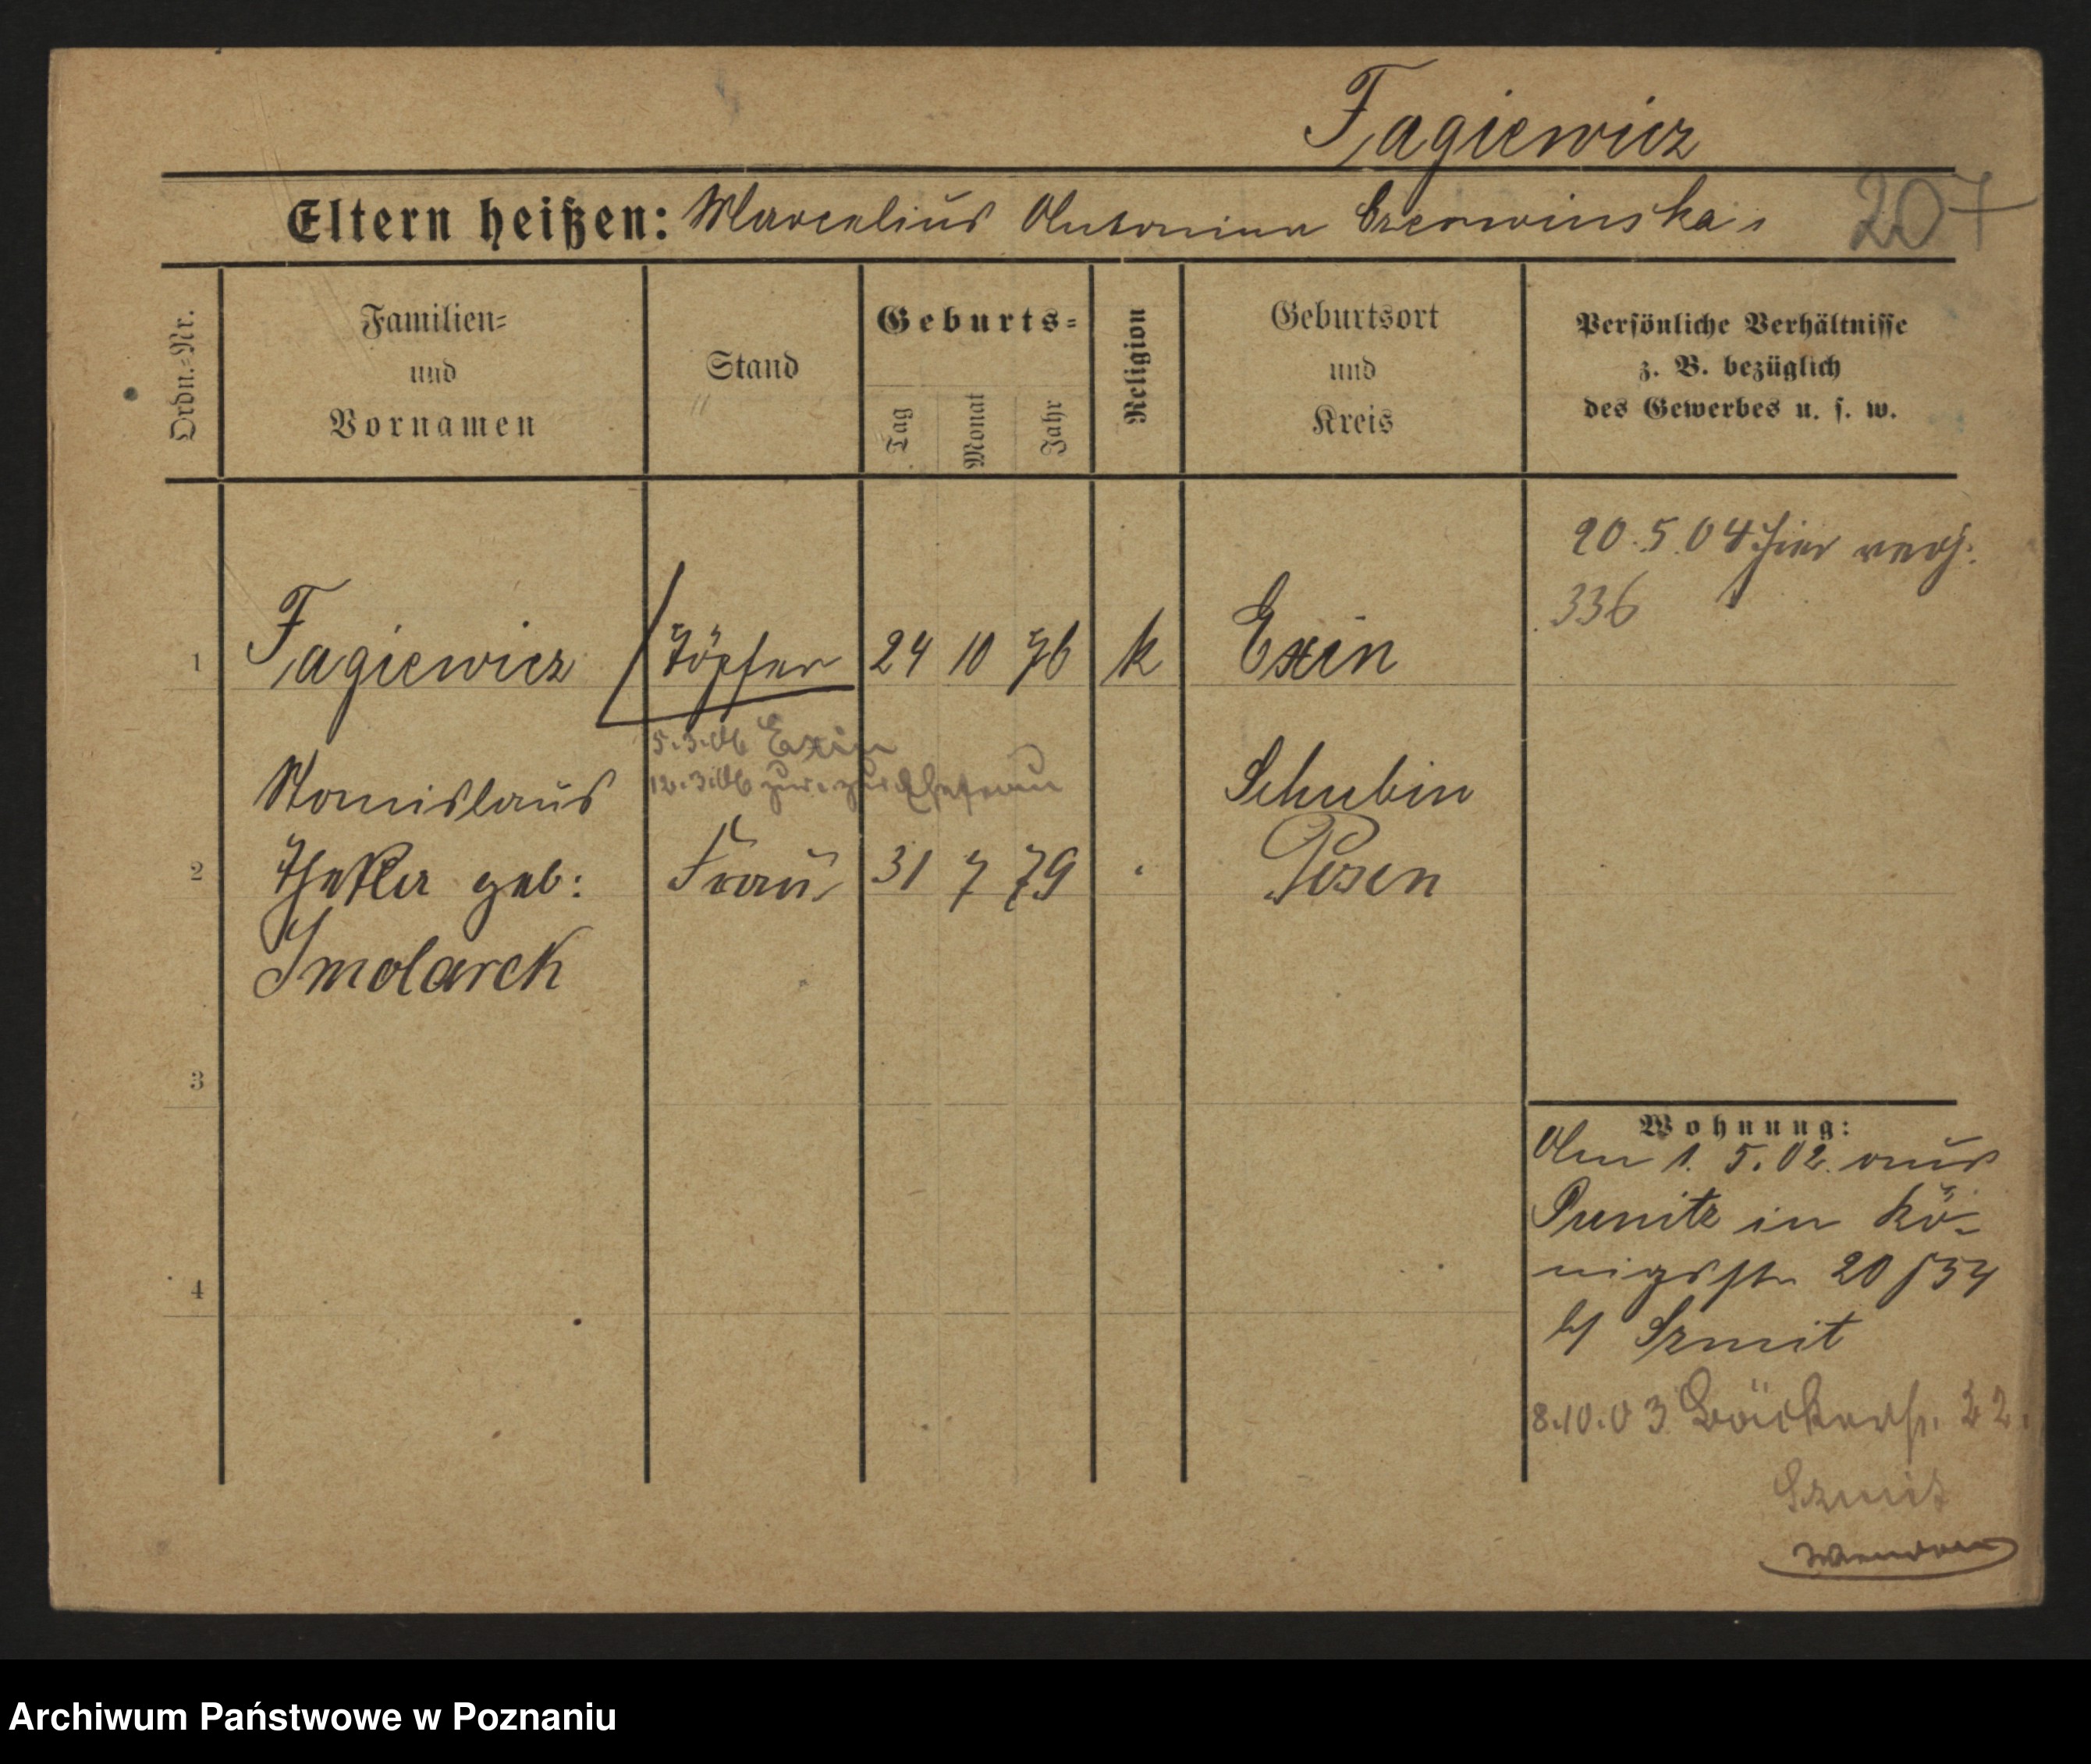 Fagiewicz
Eltern heißen: Marcelius Antonina Czerwinska
207
Ordn.-Nr.
Familien-
und
Vornamen
Stand
Geburts-
Tag
Monat
Jahr
Religion
Geburtsort
und
Kreis
Persönliche Verhältnisse
z. B. bezüglich
des Gewerbes u. s. w.
20.5.04 hier verh.
336
1
Fagiewicz
Töpfer
24 10 76
k
Exin
5.3.06 Exin
12.3.06 zur. zur Ehefrau
Stanislaus
Schubin
2
Thekla geb:
Frau
31 7 79
Posen
Smolarek
3
4
Wohnung:
Am 1. 5. 02. aus
Punitz in Kö-
nigsstr 20/54
b/ Szmit
8.10.03 Bäckerstr. 22.
Szmit